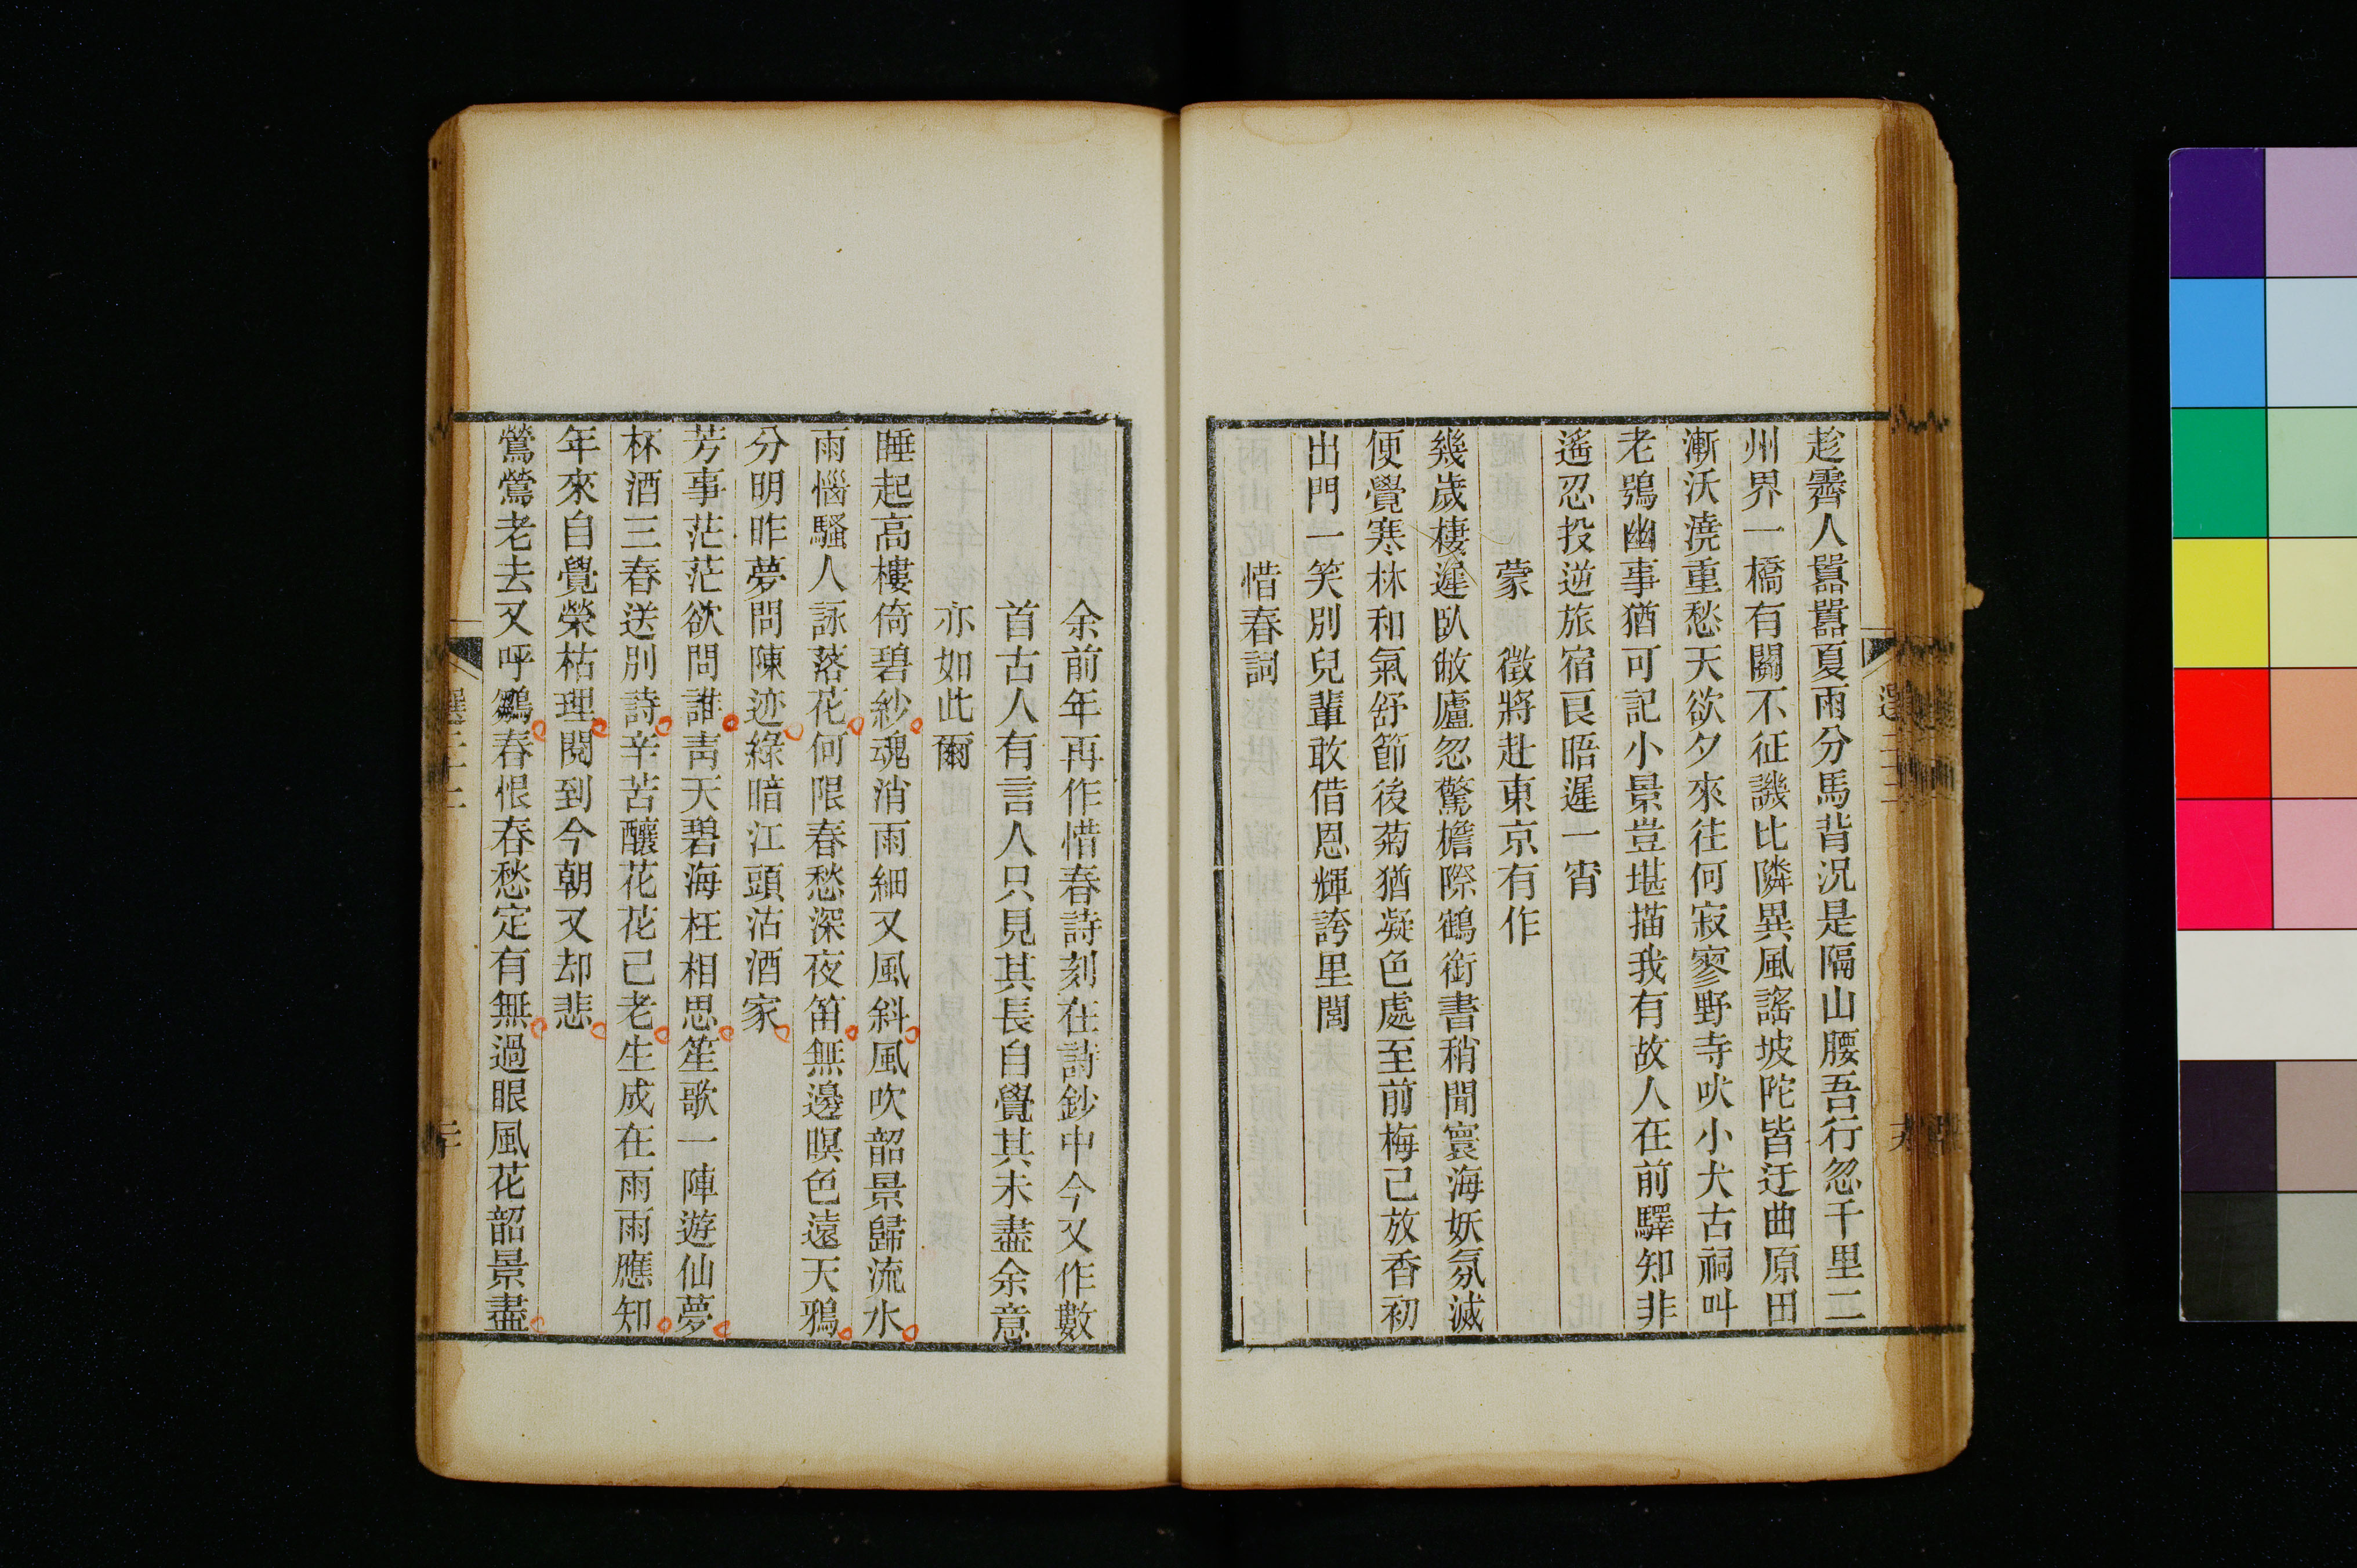 趁霽人囂囂夏雨分馬背況是隔山腰吾行忽千里二
州界一橋有關不征譏比隣異風謠坡陀皆迂曲原田
漸沃澆重愁天欲夕來往何寂寥野寺吠小犬古祠叫
老鴞幽事猶可記小景豈堪描我有故人在前驛知非
遙忍投逆旅宿良晤遲一宵
蒙　徵將赴東京有作
幾歲棲遲臥敝廬忽驚檐際鶴銜書稍聞寰海妖氛滅
便覺寒林和氣舒節後菊猶凝色處至前梅已放香初
出門一笑別兒輩敢借恩輝誇里閭
惜春詞
余前年再作惜春詩刻在詩鈔中今又作數
首古人有言人只見其長自覺其未盡余意
亦如此爾
睡起高樓倚碧紗魂消雨細又風斜風吹韶景歸流水
雨惱騷人詠落花何限春愁深夜笛無邊暝色遠天鴉
分明昨夢問陳迹綠暗江頭沽酒家
芳事茫茫欲問誰靑天碧海枉相思笙歌一陣遊仙夢
杯酒三春送別詩辛苦釀花花已老生成在雨雨應知
年來自覺榮枯理閱到今朝又却悲
鶯鶯老去又呼鶵春恨春愁定有無過眼風花韶景盡